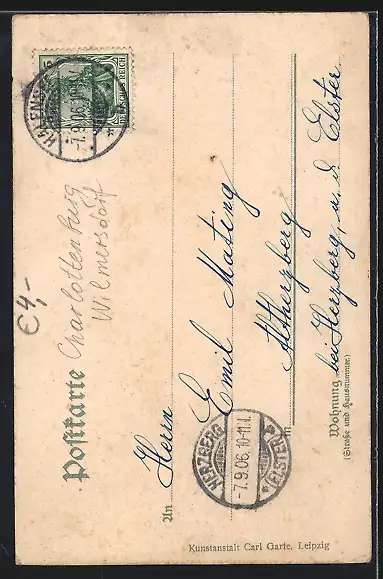 Postkarte
Charlottenburg
Wilmersdorf
€4,-
DEUTSCHES REICH
5
-7.9.06.
An Herrn
Emil Mating
in Altherzberg
Wohnung bei Herzberg, a. d. Elster.
(Straße und Hausnummer)
HERZBERG
-7.9.06.10-11.
(ELSTER)
Kunstanstalt Carl Garte, Leipzig